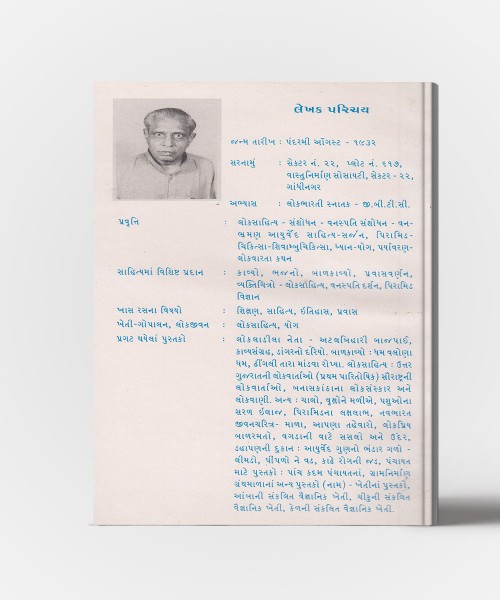 લેખક પરિચય
જન્મ તારીખ : પંદરમી ઑગસ્ટ - ૧૯૩૨
સરનામું : સેક્ટર નં. ૨૨, પ્લોટ નં. ૬૧૭,
વાસ્તુનિર્માણ સોસાયટી, સેક્ટર - ૨૨,
ગાંધીનગર
અભ્યાસ : લોકભારતી સ્નાતક - જી.બી.ટી.સી.
પ્રવૃત્તિ : લોકસાહિત્ય - સંશોધન - વનસ્પતિ સંશોધન - વન-
ભ્રમણ આયુર્વેદ સાહિત્ય-સર્જન, પિરામિડ-
ચિકિત્સા-શિવામ્બુચિકિત્સા, ધ્યાન-યોગ, પર્યાવરણ-
લોકવારતા કથન
સાહિત્યમાં વિશિષ્ટ પ્રદાન : કાવ્યો, ભજનો, બાળકાવ્યો, પ્રવાસવર્ણન,
વ્યક્તિચિત્રો - લોકસાહિત્ય, વનસ્પતિ દર્શન, પિરામિડ
વિજ્ઞાન
ખાસ રસના વિષયો : શિક્ષણ, સાહિત્ય, ઇતિહાસ, પ્રવાસ
ખેતી-ગોપાલન, લોકજીવન : લોકસાહિત્ય, યોગ
પ્રગટ થયેલાં પુસ્તકો : લોકલાડીલા નેતા - અટલબિહારી બાજપાઈ,
કાવ્યસંગ્રહ, ડાંગરનો દરિયો. બાળકાવ્યો : ધમ વલોણા
ધમ, ઢીંગલી તારા માંડવા રોપ્યા. લોકસાહિત્ય : ઉત્તર
ગુજરાતની લોકવાર્તાઓ (પ્રથમ પારિતોષિક) સૌરાષ્ટ્રની
લોકવાર્તાઓ, બનાસકાંઠાના લોકસંસ્કાર અને
લોકવાણી. અન્ય : ચાલો, વૃક્ષોને મળીએ, પશુઓના
સરળ ઇલાજ, પિરામિડના લક્ષલાભ, નવભારત
જીવનચરિત્ર- માળા, આપણા તહેવારો, લોકપ્રિય
બાળરમતો, વગડાની વાટે સસલો અને ઉંદર,
ડહાપણની દુકાન : આયુર્વેદ ગુણનો ભંડાર ગળો -
લીમડો, પીપળો ને વડ, કાઢે રોગની જડ, પંચાયત
માટે પુસ્તકો : પાંચ કદમ પંચાયતનાં, ગ્રામનિર્માણ
ગ્રંથમાળાનાં અન્ય પુસ્તકો (નામ) - ખેતીનાં પુસ્તકો,
આંબાની સંકલિત વૈજ્ઞાનિક ખેતી, ચીકુની સંકલિત
વૈજ્ઞાનિક ખેતી, કેળની સંકલિત વૈજ્ઞાનિક ખેતી.